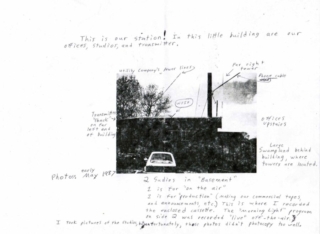 This is our station! In this little building are our
offices, studios, and transmitter.
utility company's power lines
For sight
tower
Phone cable
Transmitter
"Shack" is
on far
left end
of building
offices
upstairs
Large
Swampland behind
building, where
towers are located.
early
Photos, May 1987
2 Studios in "Basement"
1 is for "on the air"
1 is for "production" (making our commercial tapes,
and announcements, etc.) This is where I recorded
the enclosed cassette. The "morning light" program
on side 2 was recorded "live"
I took pictures of the studio, unfortunately, those photos didn't photocopy